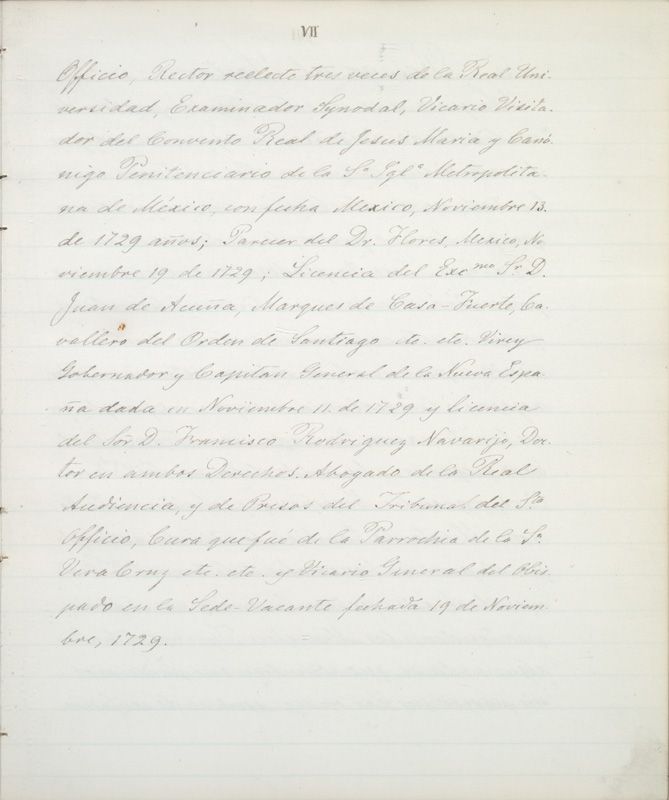 VII
Officio, Rector reelecto tres veces de la Real Uni-
versidad, Examinador Synodal, Vicario Visita-
dor del Convento Real de Jesus Maria y Canó-
nigo Penitenciario de la Sa. Igla Metropolita-
na de México, con fecha Mexico, Noviembre 13.
de 1729 años; Parecer del Dr. Flores, Mexico, No
viembre 19 de 1729; Licencia del Excmo Sr. D.
Juan de Acuña, Marques de Casa-Fuerte, Ca-
vallero del Orden de Santiago etc. etc. Virey
Gobernador y Capitan General de la Nueva Espa-
ña dada en Noviembre 11. de 1729 y licencia
del Sor. D. Francisco Rodriguez Navarijo, Doc-
tor en ambos Derechos. Abogado de la Real
Audiencia, y de Presos del Tribunal del Sto
Officio, Cura que fué de la Parrochia de la Sa.
Vera Cruz etc. etc. y Vicario General del Obis-
pado en la Sede-Vacante fechada 19 de Noviem-
bre, 1729.